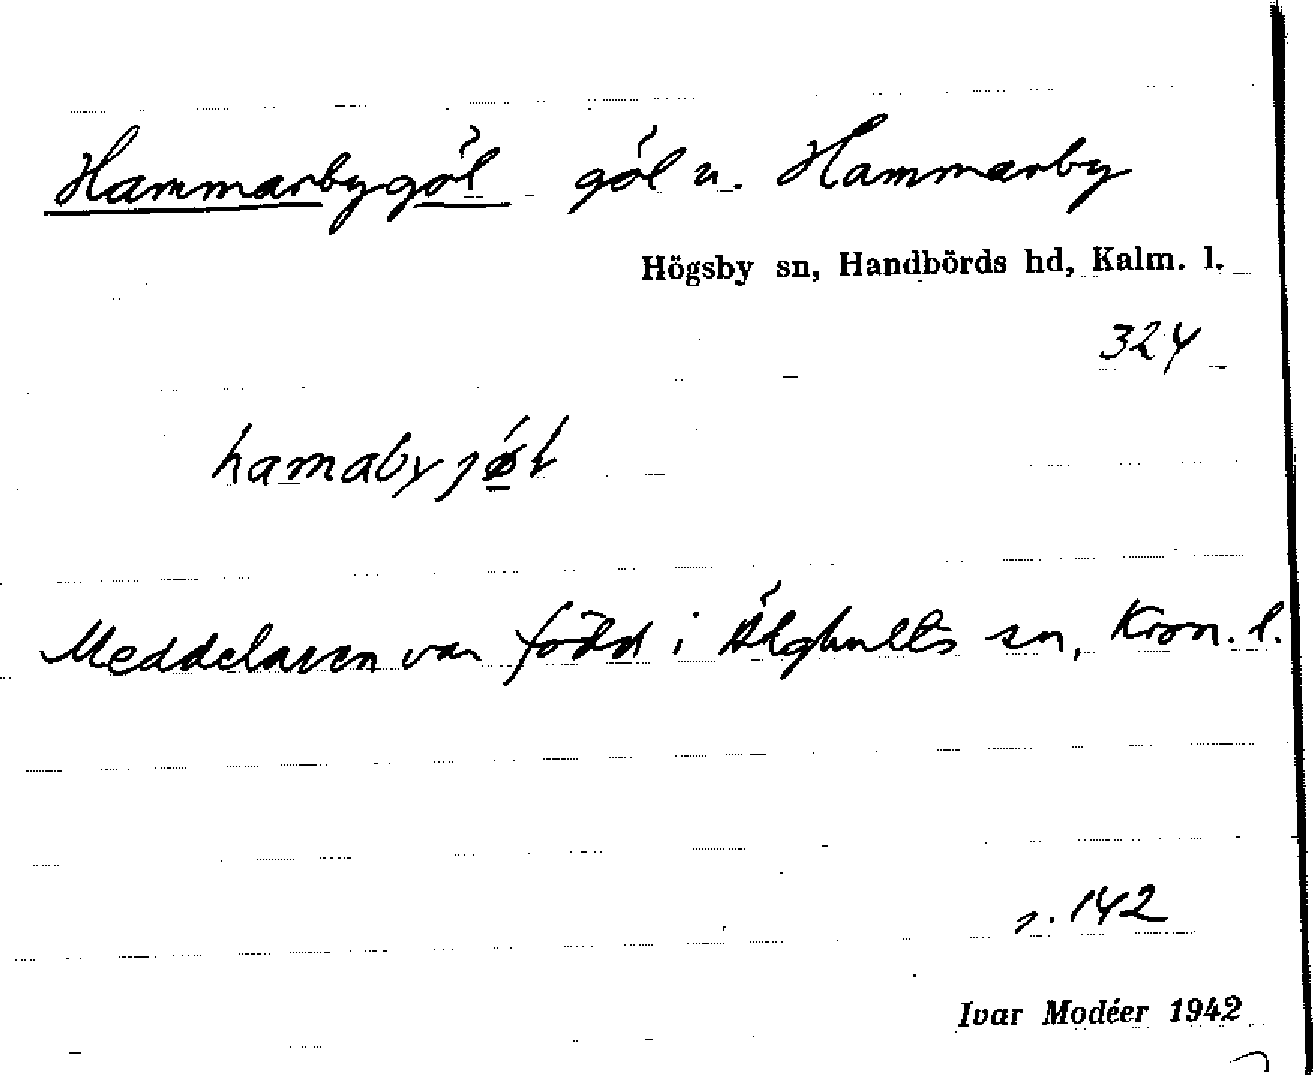 Hammarbygöl göl u. Hammarby
Högsby sn, Handbörds hd, Kalm. l.
324
hamabyjǿ̲l
Meddelaren var född i Älghults sn, Kron. l.
s. 142
Ivar Modéer 1942